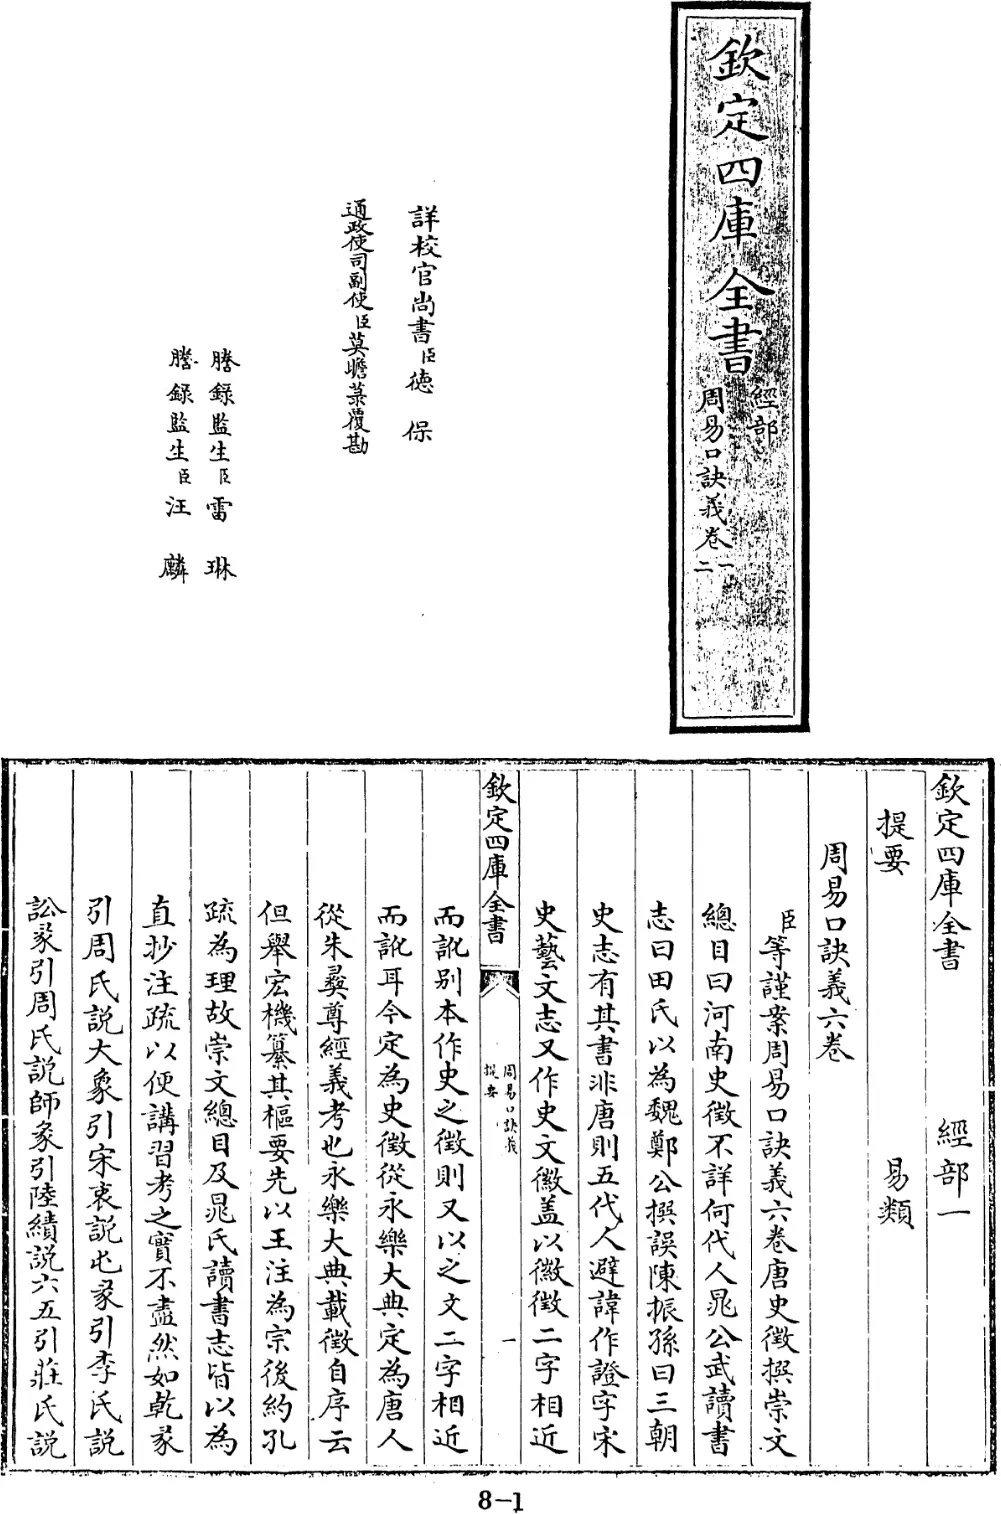 欽定四庫全書
經部
周易口訣義卷一
二
詳校官尚書臣德保
通政使司副使臣莫瞻菉覆勘
謄錄監生臣雷琳
謄錄監生臣汪麟
欽定四庫全書 經部一
提要 易類
周易口訣義六卷
臣等謹案周易口訣義六卷唐史徵撰崇文
總目曰河南史徵不詳何代人晁公武讀書
志曰田氏以為魏鄭公撰誤陳振孫曰三朝
史志有其書非唐則五代人避諱作證字宋
史藝文志又作史文徽盖以徽徵二字相近
欽定四庫全書
周易口訣義
提要
一
而訛别本作史之徵則又以之文二字相近
而訛耳今定為史徵從永樂大典定為唐人
從朱彝尊經義考也永樂大典載徵自序云
但舉宏機纂其樞要先以王注為宗後約孔
疏為理故崇文總目及晁氏讀書志皆以為
直抄注疏以便講習考之實不盡然如乾彖
引周氏説大象引宋衷説屯彖引李氏説
訟彖引周氏説師彖引陸績説六五引莊氏説
8-1